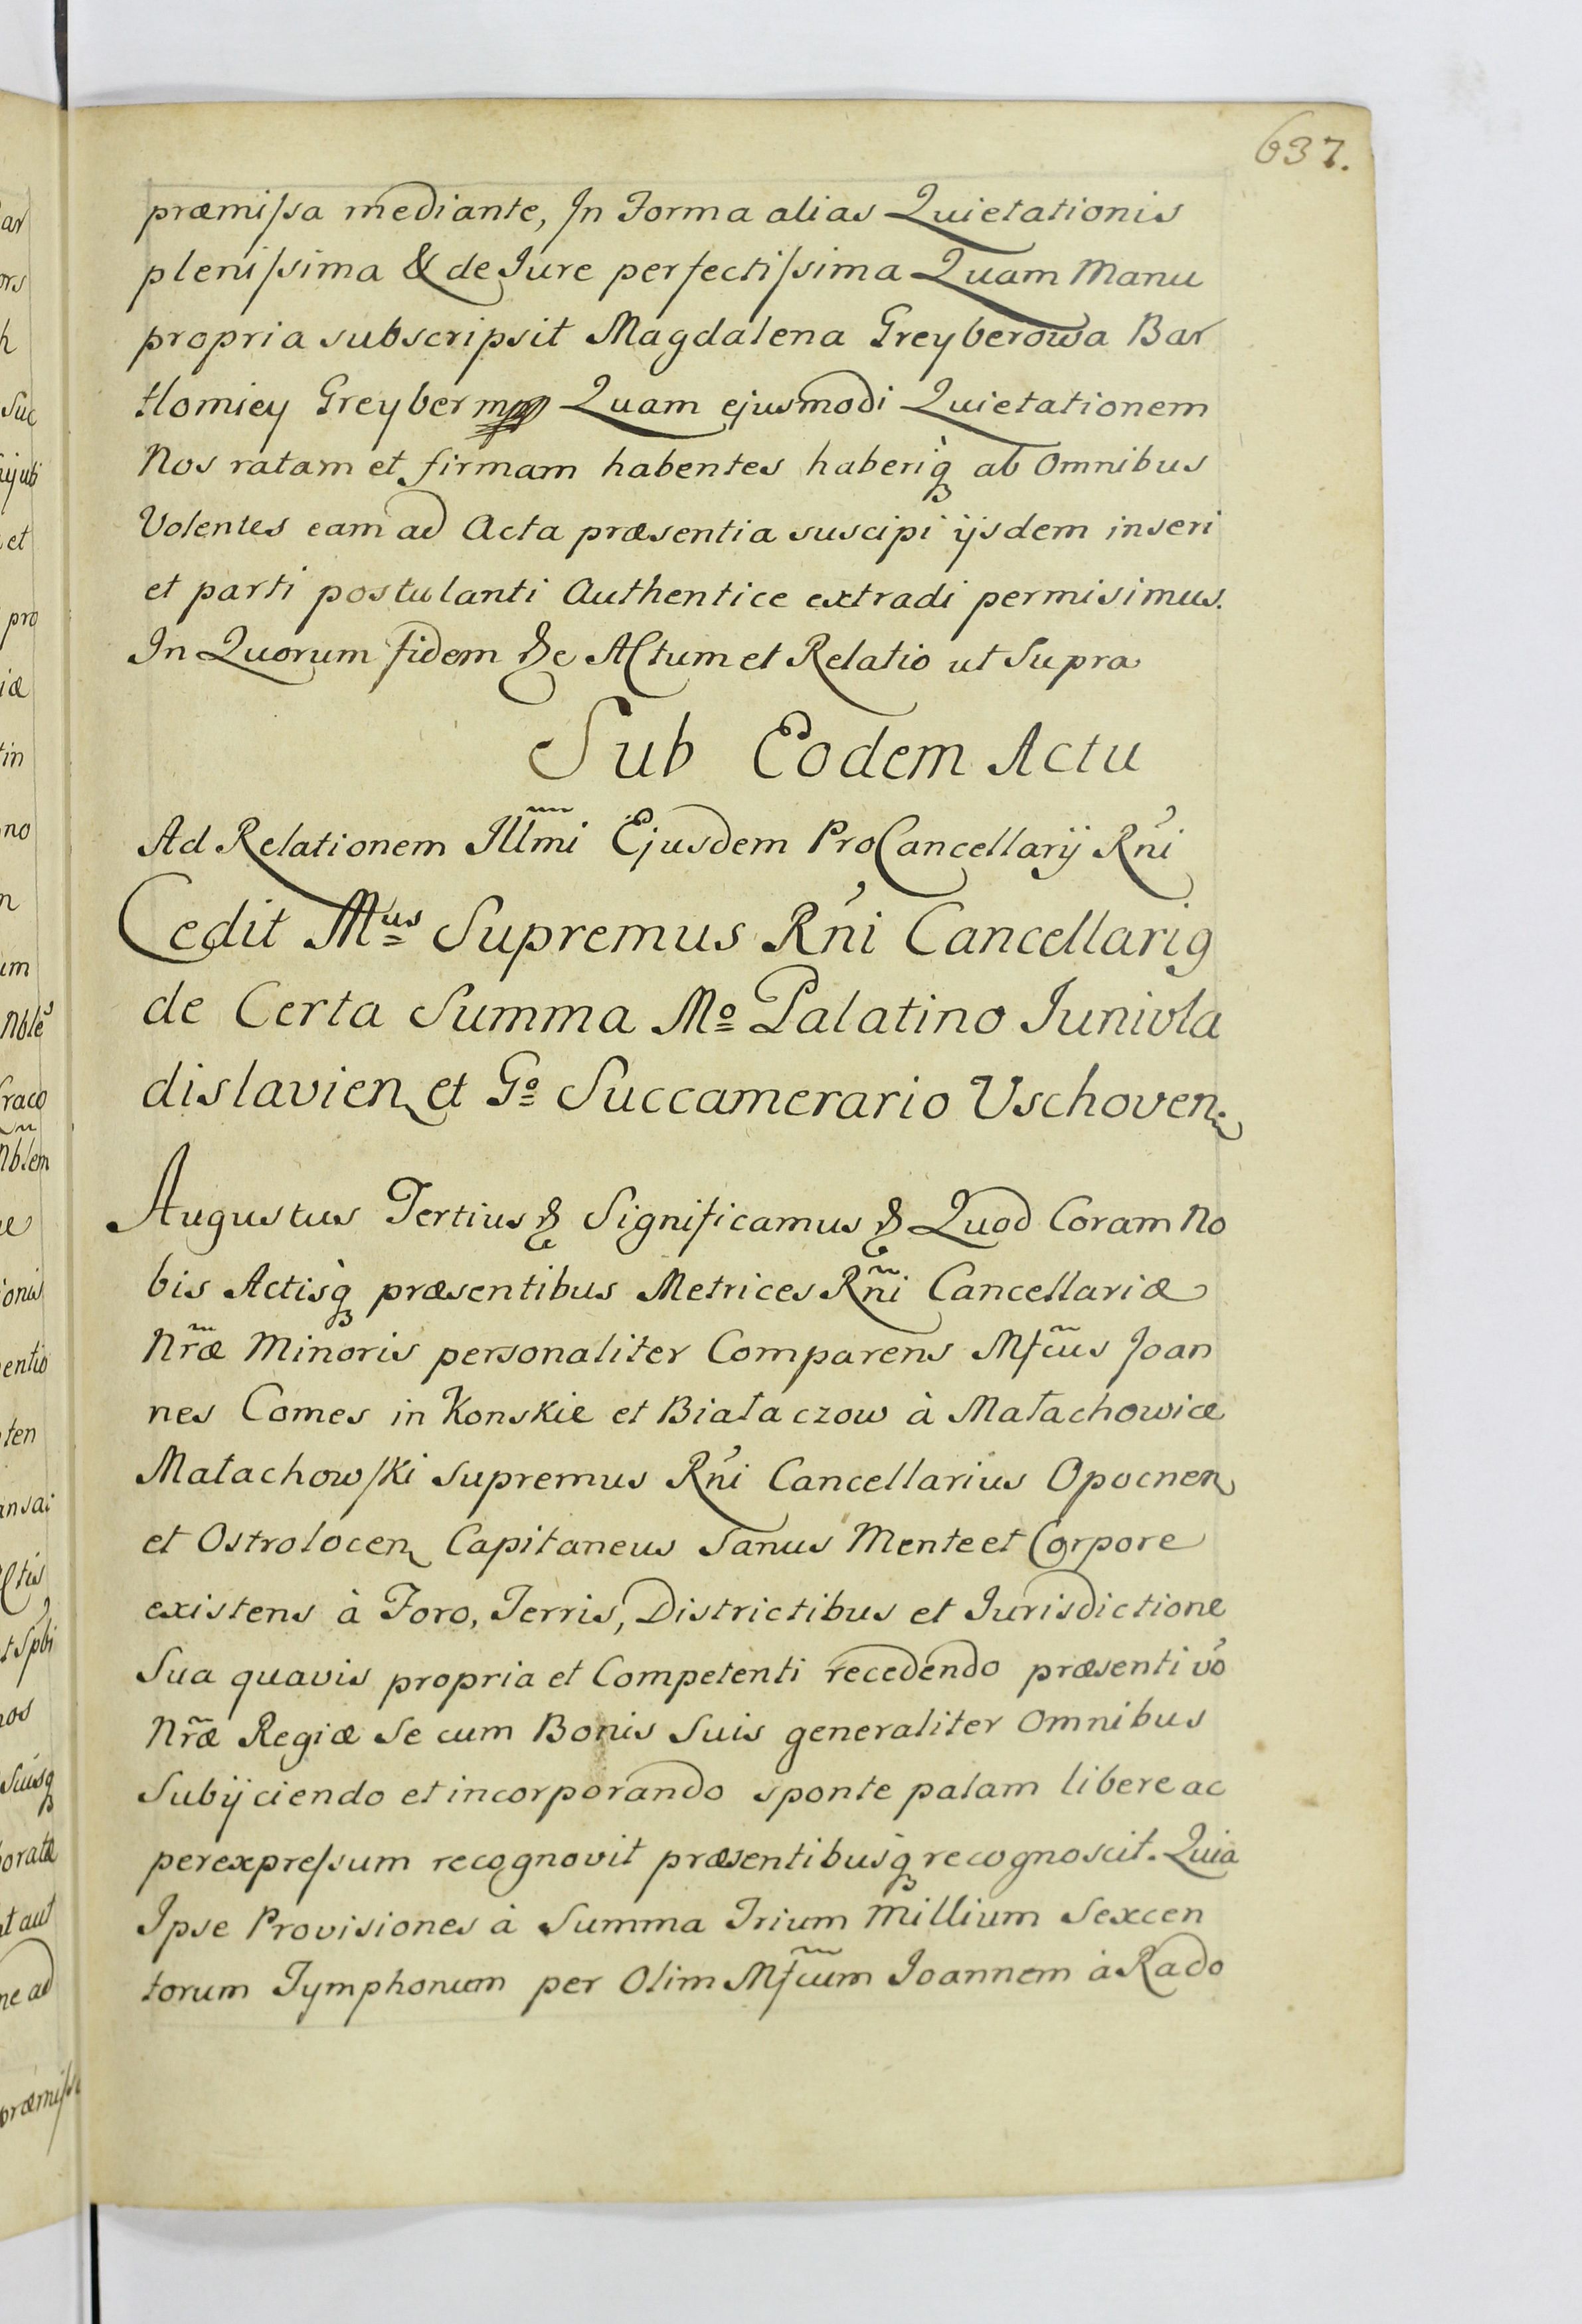 637.
præmiſsa mediante, In Forma alias Quietationis
pleniſsima & de Jure perfectiſsima Quam Manu
propria subscripsit Magdalena Greyberowa Bar
tłomiey Greyber mpp Quam ejusmodi Quietationem
Nos ratam et firmam habentes haberiq̀ ab Omnibus
Volentes eam ad Acta præsentia suscipi ijsdem inseri
et parti postulanti Authentice extradi permisimus.
In Quorum fidem &c Actum et Relatio ut Supra
Sub Eodem Actu
Ad Relationem Illm̃i Ejusdem ProCancellarij Rn̓i
Cedit Mus Supremus Rn̓i Cancellarig
de Certa Summa Mo Palatino Junivla
dislavien et Go Succamerario Uschoven.
Augustus Tertius &c Significamus &c Quod Coram No
bis Actisq̀ præsentibus Metrices Rñi Cancellariæ
Nr̃æ Minoris personaliter Comparens Mfc̃us Joan
nes Comes in Konskie et Białaczow à Małachowice
Małachowſki Supremus Rn̓i Cancellarius Opocnen
et Ostrolocen Capitaneus Sanus Mente et Corpore
existens à Foro, Terris, Districtibus et Jurisdictione
Sua quavis propria et Competenti recedendo præsenti vo̓
Nr̃æ Regiæ Se cum Bonis Suis generaliter Omnibus
Subijciendo et incorporando sponte palam libere ac
perexpreſsum recognovit præsentibusq̀ recognoscit. Quia
Ipse Provisiones à Summa Trium Millium Sexcen
torum Tymphonum per Olim Mfc̃um Joannem à Rado